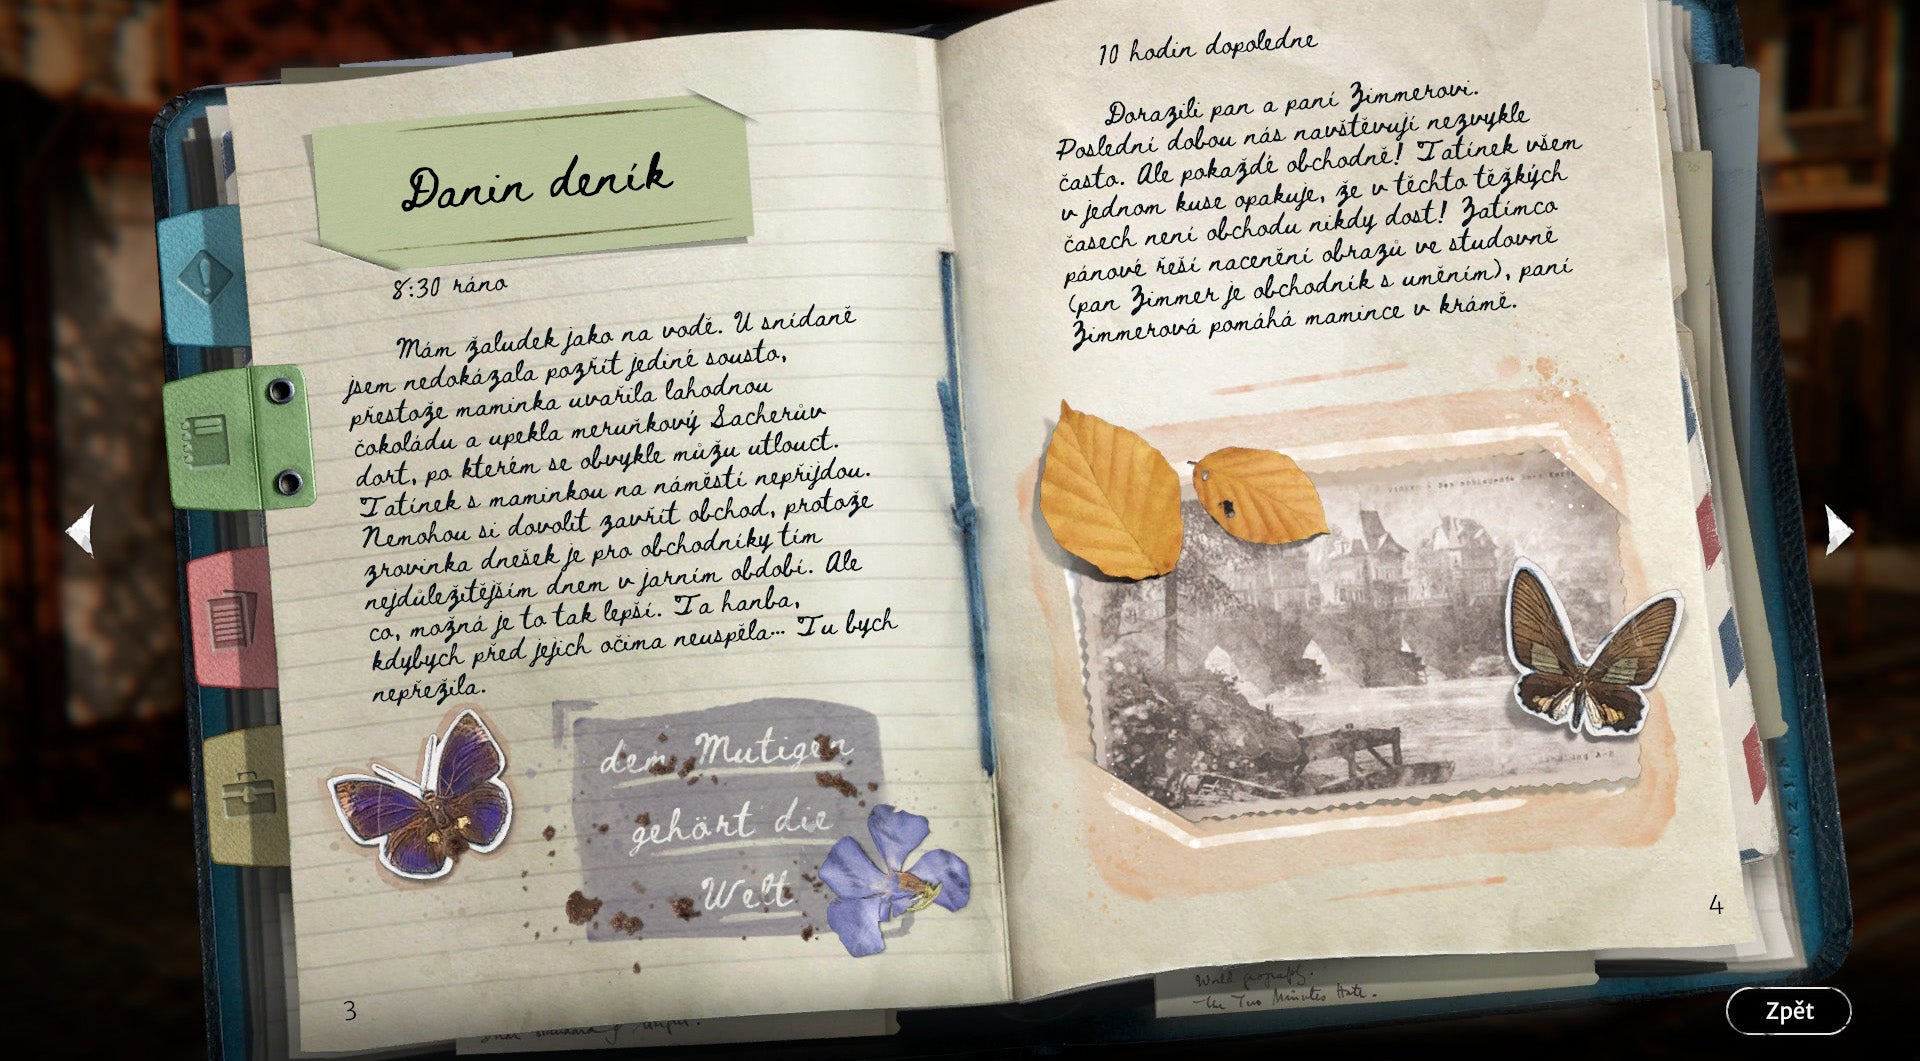 Danin deník
8:30 ráno
Mám žaludek jako na vodě. U snídaně
jsem nedokázala pozřít jediné sousto,
přestože maminka uvařila lahodnou
čokoládu a upekla meruňkový Sacherův
dort, po kterém se obvykle můžu utlouct.
Tatínek s maminkou na náměstí nepřijdou.
Nemohou si dovolit zavřít obchod, protože
zrovinka dnešek je pro obchodníky tím
nejdůležitějším dnem v jarním období. Ale
co, možná je to tak lepší. Ta hanba,
kdybych před jejich očima neuspěla... Tu bych
nepřežila.
dem Mutigen
gehört die
Welt
3
10 hodin dopoledne
Dorazili pan a paní Zimmerovi.
Poslední dobou nás navštěvují nezvykle
často. Ale pokaždé obchodně! Tatínek všem
v jednom kuse opakuje, že v těchto těžkých
časech není obchodu nikdy dost! Zatímco
pánové řeší nacenění obrazů ve studovně
(pan Zimmer je obchodník s uměním), paní
Zimmerová pomáhá mamince v krámě.
4
World
The Two Minutes Hate.
Zpět